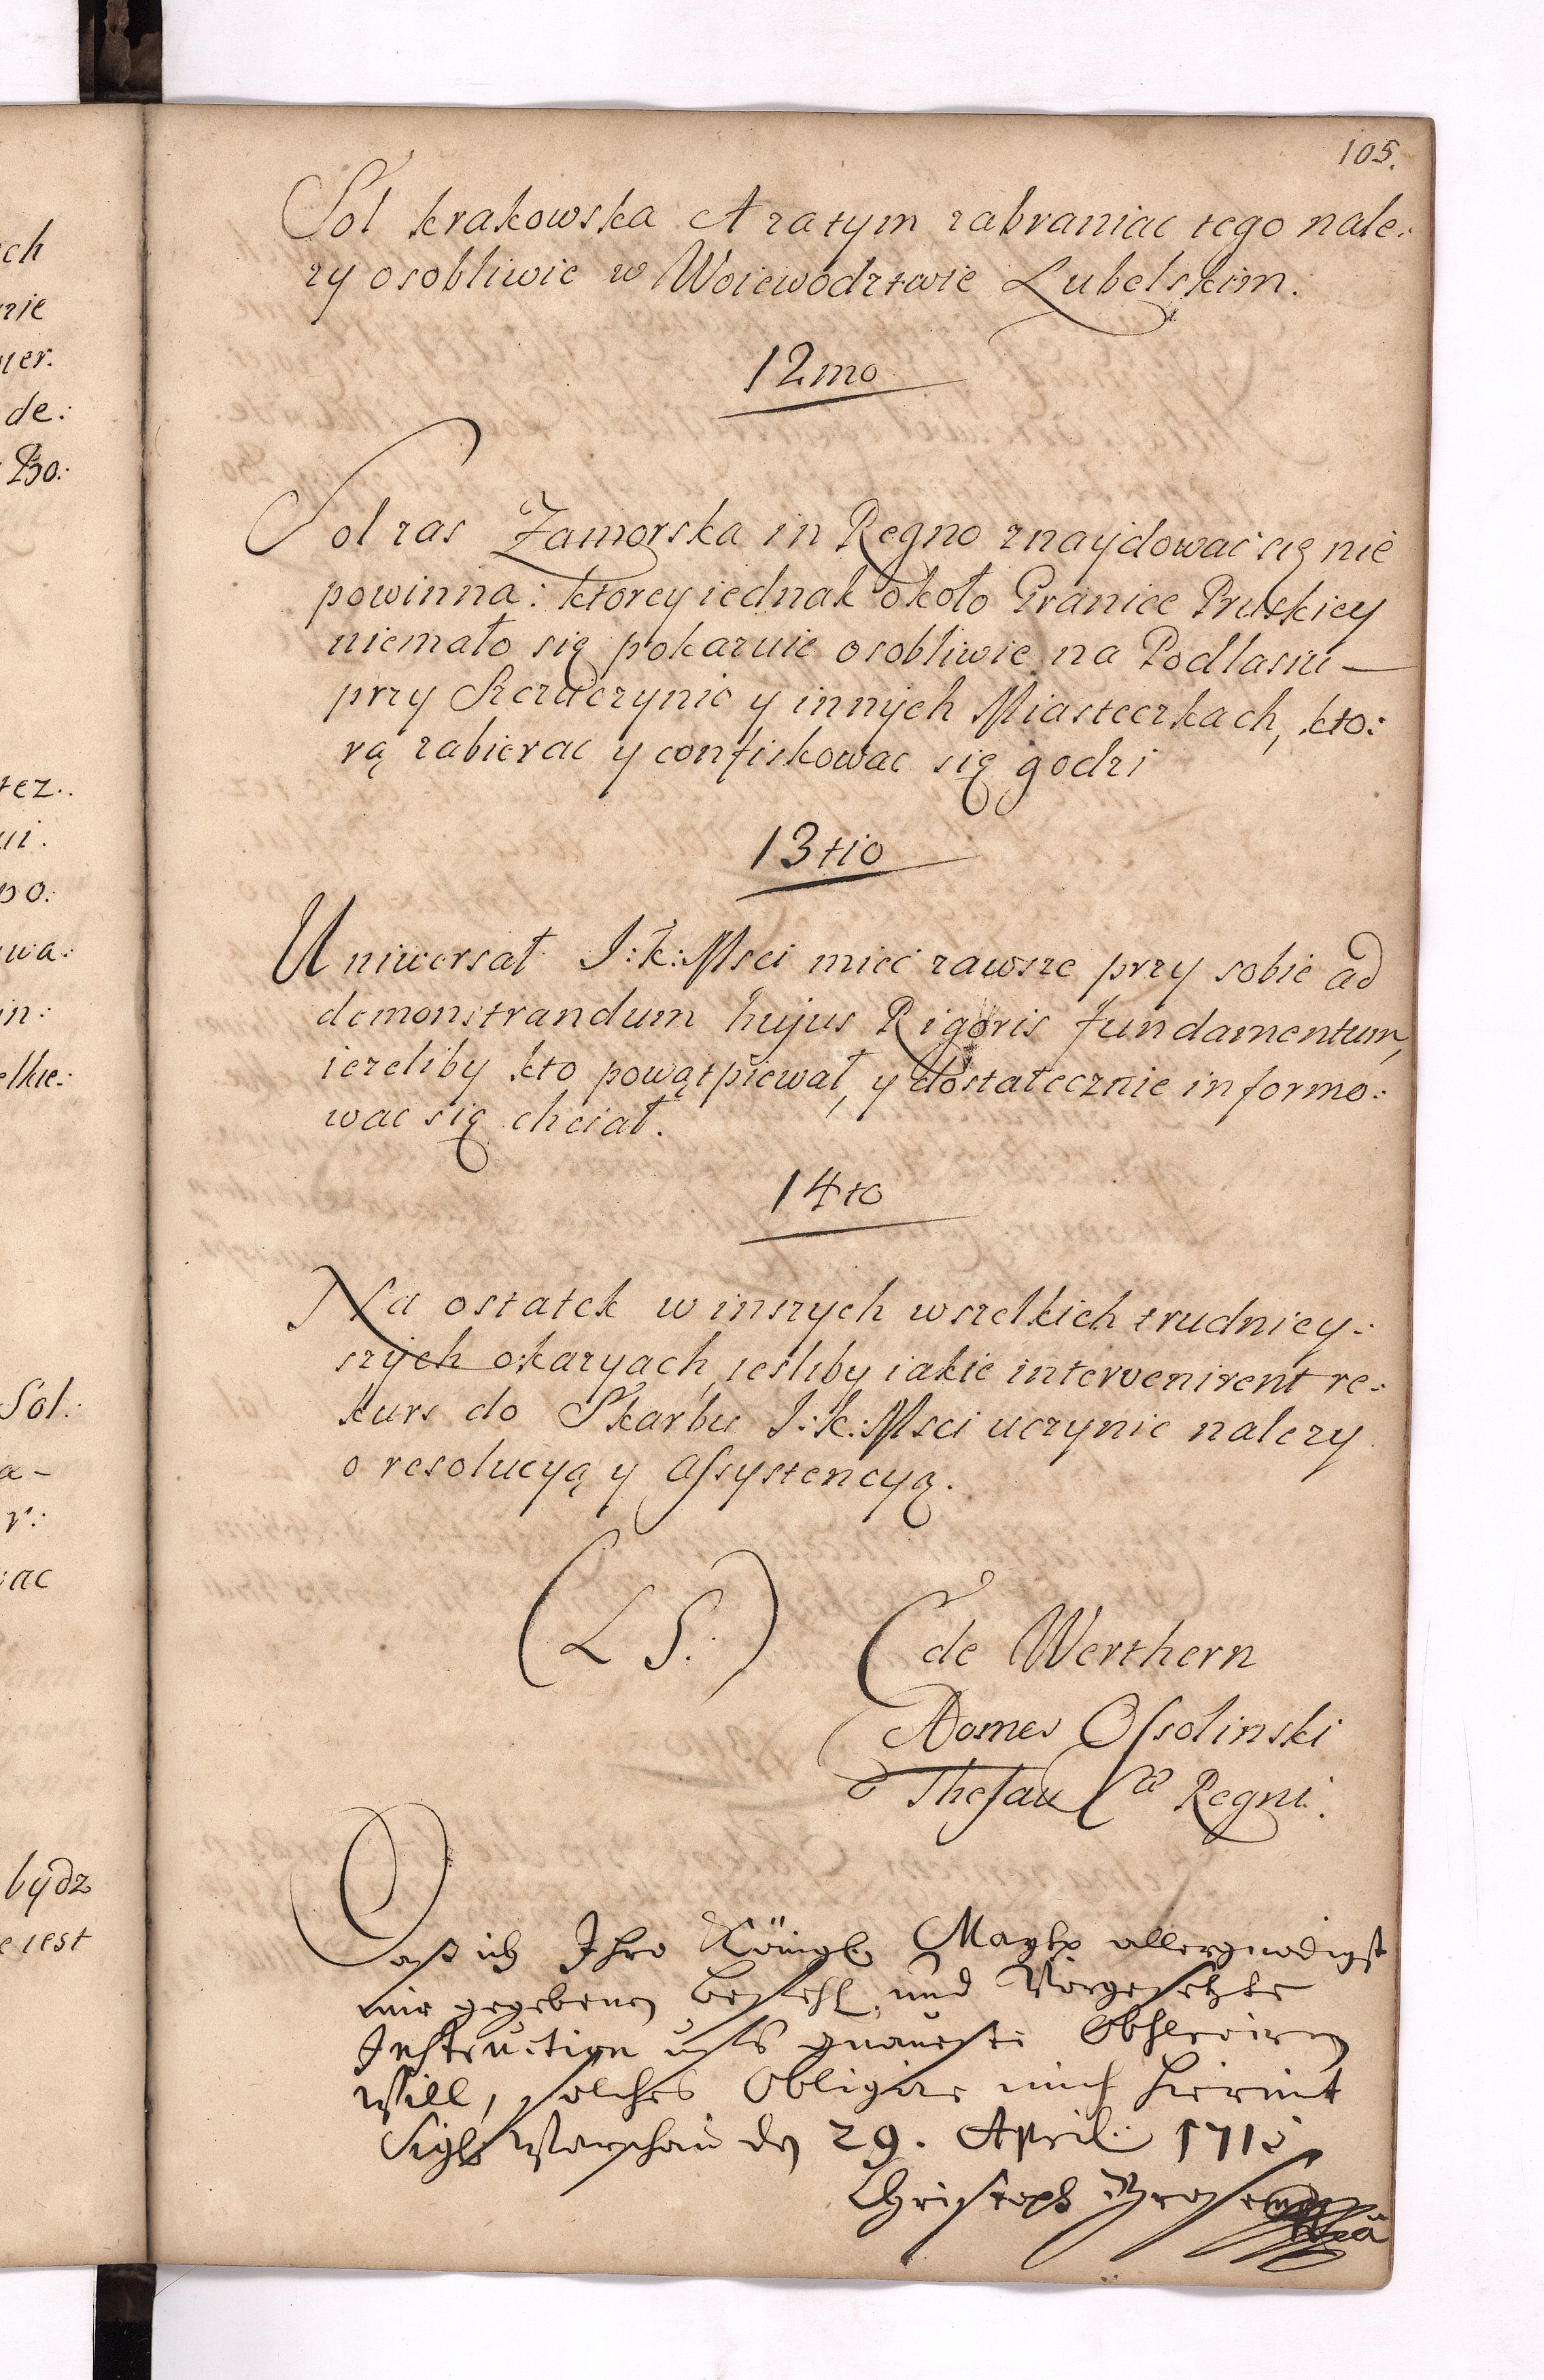 105.
Sol krakowska A zatym zabraniac tego nale:
zy osobliwie w Woiewodztwie Lubelskim.
12mo
Sol zas Zamorska in Regno znaydować się nie
powinna: ktorey iednak około Granice Pruskiey
niemało się pokazuie osobliwie na Podlasiu —
przy Szczuczynie y innych Miasteczkach, kto:
rą zabierac y confiskowac się godzi
13tio
Uniwersał J:k:Msci mieć zawsze przy sobie ad
demonstrandum hujus Rigoris fundamentum,
iezeliby kto powątpiewał, y dostatecznie informo:
wac się chciał.
14to
Na ostatek w inszych wszelkich trudniey:
szych okazyach, iesliby iakie intervenirent re:
kurs do Skarbu J:k:Msci uczynic nalezy
o resolucyą y assystencyą.
(L S.) C de Werthern
Ossolinski
Thesau Regni.
Daß ich Ihro Königl Maytt allergnädigst
mir gegebenen befehl, und Vorgesetzte
Instruction aufs genaueste Observiren
Will, solches Obligire mich hiermit
Sigl Warschau den 29. April 1715
Christoph
ch
nie
ier.
de:
Bo:
tez..
ui.
po:
wa:
in:
elkie:
Sol:
a-
r:
ac
bydz
e iest